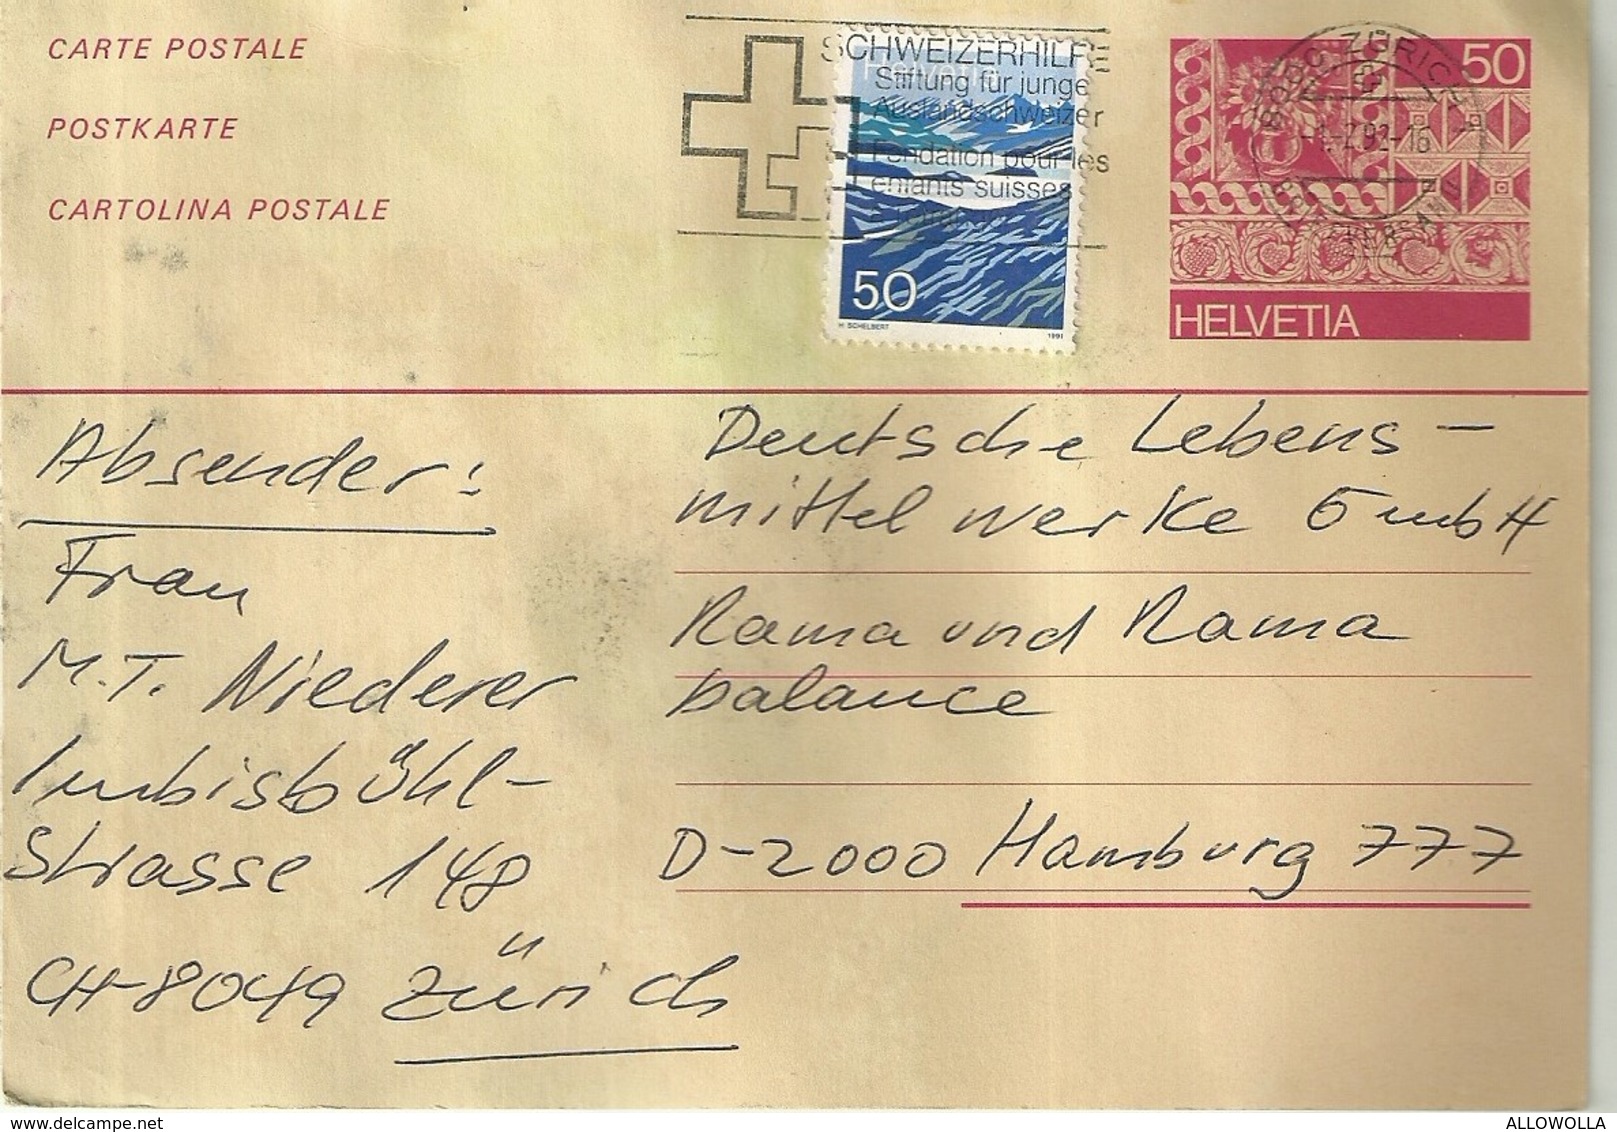 CARTE POSTALE
POSTKARTE
CARTOLINA POSTALE
SCHWEIZERHILFE
Stiftung für junge
Auslandschweizer
Fondation pour les
enfants suisses
Helvetia
50
H. SCHELBERT 1991
50
HELVETIA
ZÜRICH
BRIEFVERSAND
Absender:
Frau
M.T. Niederer
Imbisbühl-
Strasse 148
CH-8049 Zürich
Deutsche Lebens-
mittelwerke GmbH
Rama und Rama
balance
D-2000 Hamburg 777
ALLOWOLLA